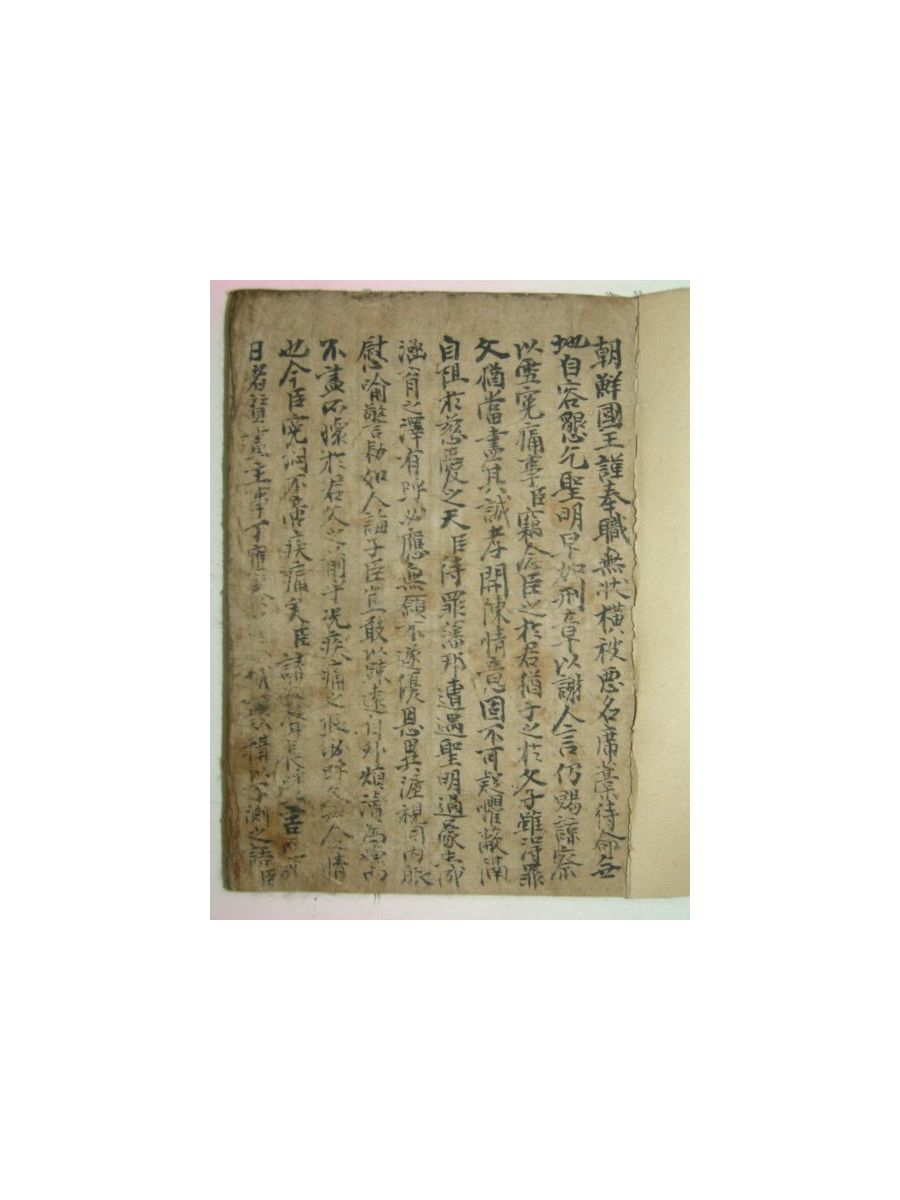 朝鮮國王謹奉職無狀橫被惡名席藁待命無
地自容懇乞聖明早如刑章以謝人言仍賜諒察
以雪寃痛事臣竊念臣之於君猶子之於父子雖得罪
父猶當盡其誠孝開陳情意固不可疑懼蔽滿
自阻於慈愛之天臣待罪藩邦遭遇聖明過蒙
涵育之澤有呼必應無願不遂優恩異渥視同內服
慰喻警勅如人誨子臣豈敢以踈遠自外煩瀆爲嫌而
不盡所懷於君父之側乎況疾痛之
也今臣寃悶不啻疾痛矣臣請
日者贊畫主事丁應泰 構以不測之語臣